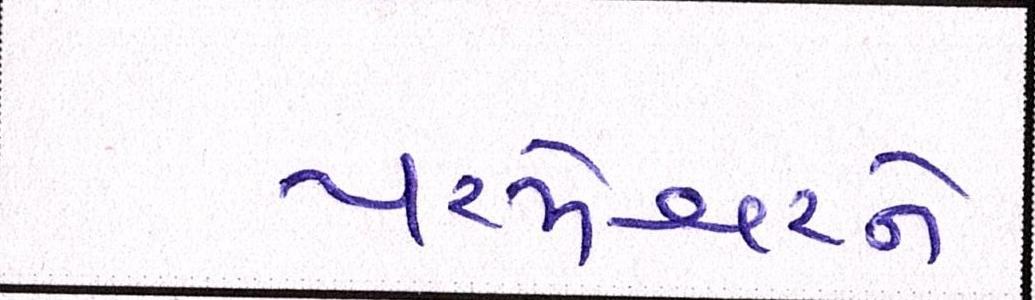 પરમેશ્વરને